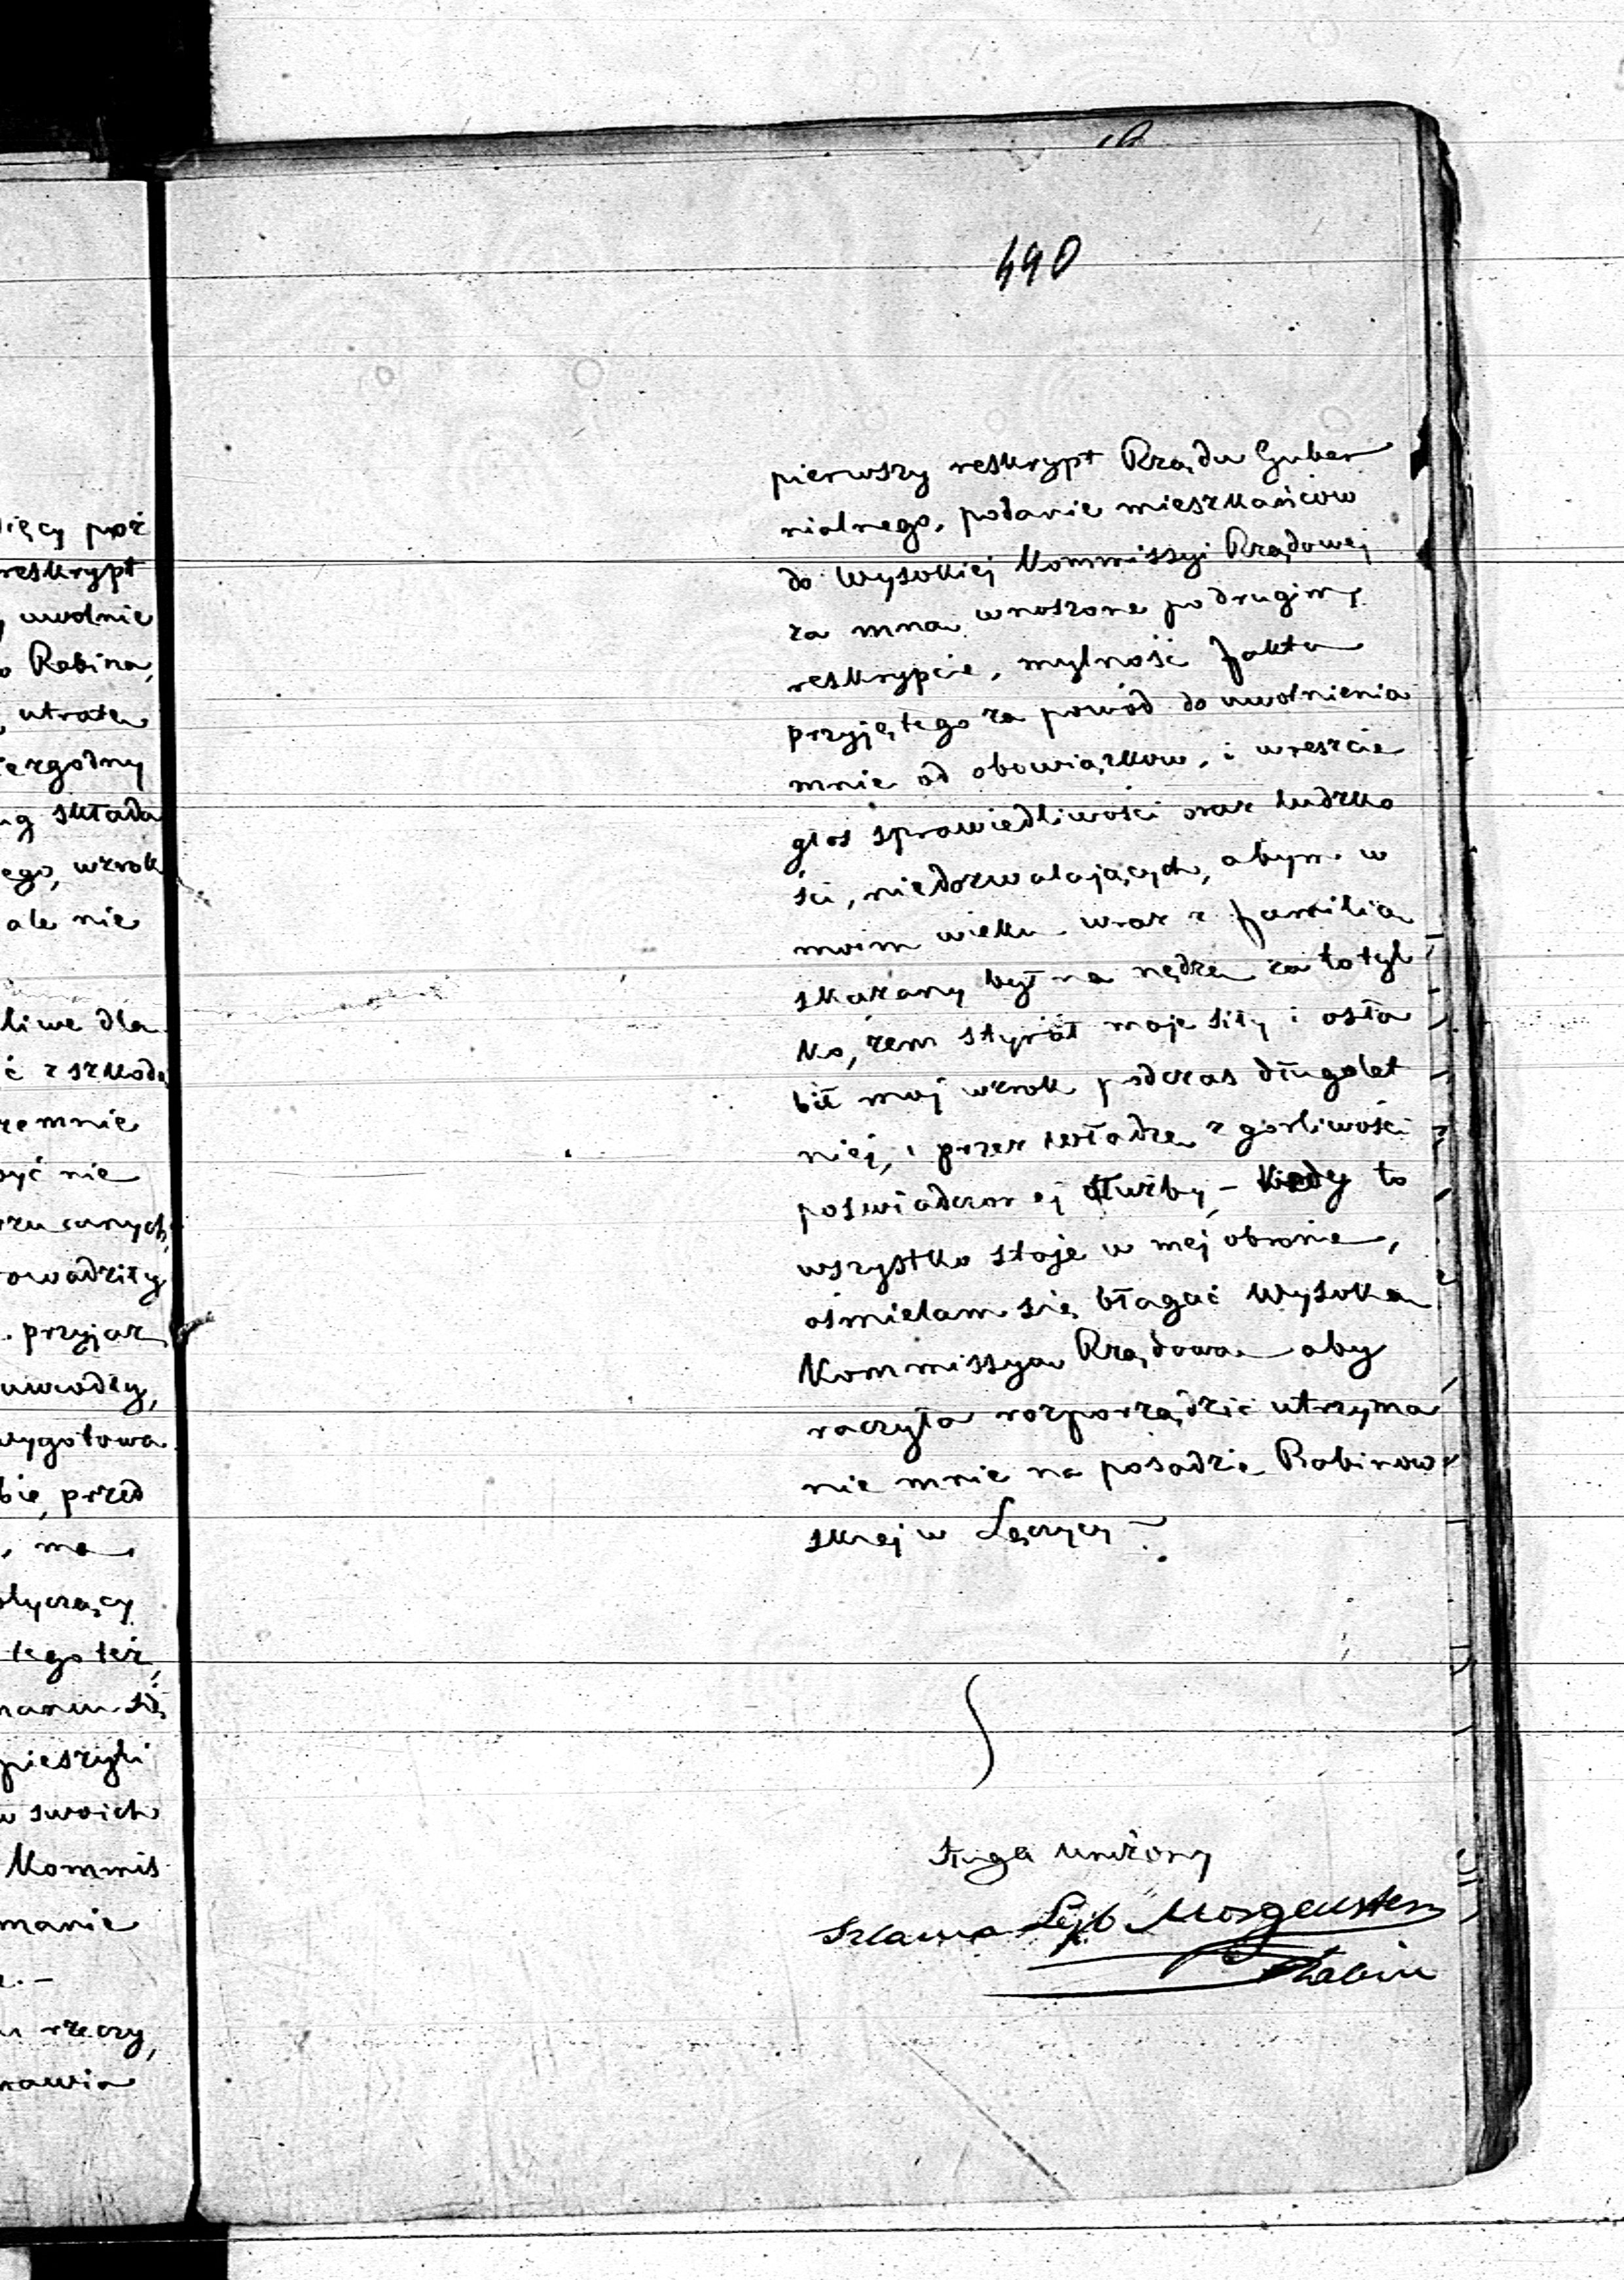 ięcy poź
reskrypt
uwolnie
Rabina,
utratę
niezgodny
składa
ego, wzrok
ale nie
liwe dla
ć z szkodą
zemnie
być nie
rzucanych,
owadziły
przyjaz
uwodzy,
wygotowa
bie, przed
, ma
otyczący
tegoteż,
się
pieszyli
w swoich
Kommis
manie
rzeczy,
nawia
490
pierwszy reskrypt Rządu Guber
nialnego, podanie mieszkańców
do Wysokiej Kommissyi Rządowej
za mną wnoszone po drugim
reskrypcie, mylność faktu
przyjętego za powód do uwolnienia
mnie od obowiązków, i wreszcie
głos sprawiedliwości oraz ludzko
ści, niedozwalających, abym w
moim wieku wraz z familią
skazany był na nędzę za to tyl
ko, żem styrał moje siły i osła
bił mój wzrok podczas długolet
niéj, i przez władze z gorliwości
poświadczonéj służby – Kiedy to
wszystko stoje w méj obronie,
ośmielam się błagać Wysoką
Kommissyą Rządową aby
raczyła rozporządzić utrzyma
nie mnie na posadzie Rabinow
skiej w Łęczycy –
Sługa uniżony
Szlama Lejb Morgenstern
Rabin